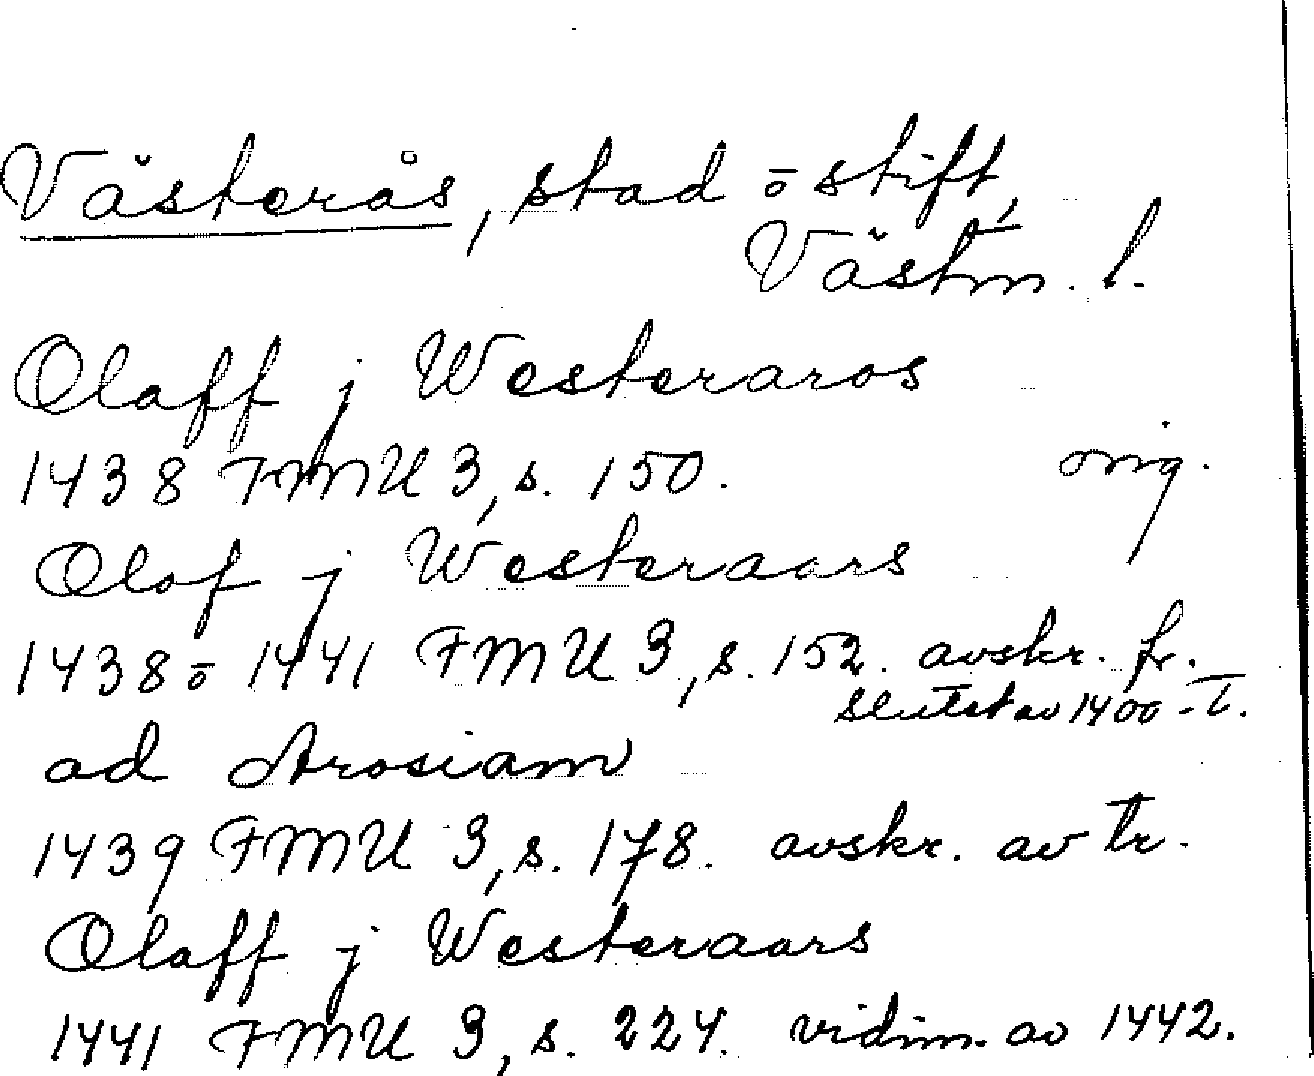 Västerås, stad ō stift,
Västm. l.
Olaff j Westeraros
1438 FMU 3, s. 150. orig.
Olof j Westeraars
1438 ō 1441 FMU 3, s. 152. avskr. fr.
slutet av 1400-t.
ad Arosiam
1439 FMU 3, s. 178. avskr. av tr.
Olaff j Westeraars
1441 FMU 3, s. 224. vidim. av 1442.